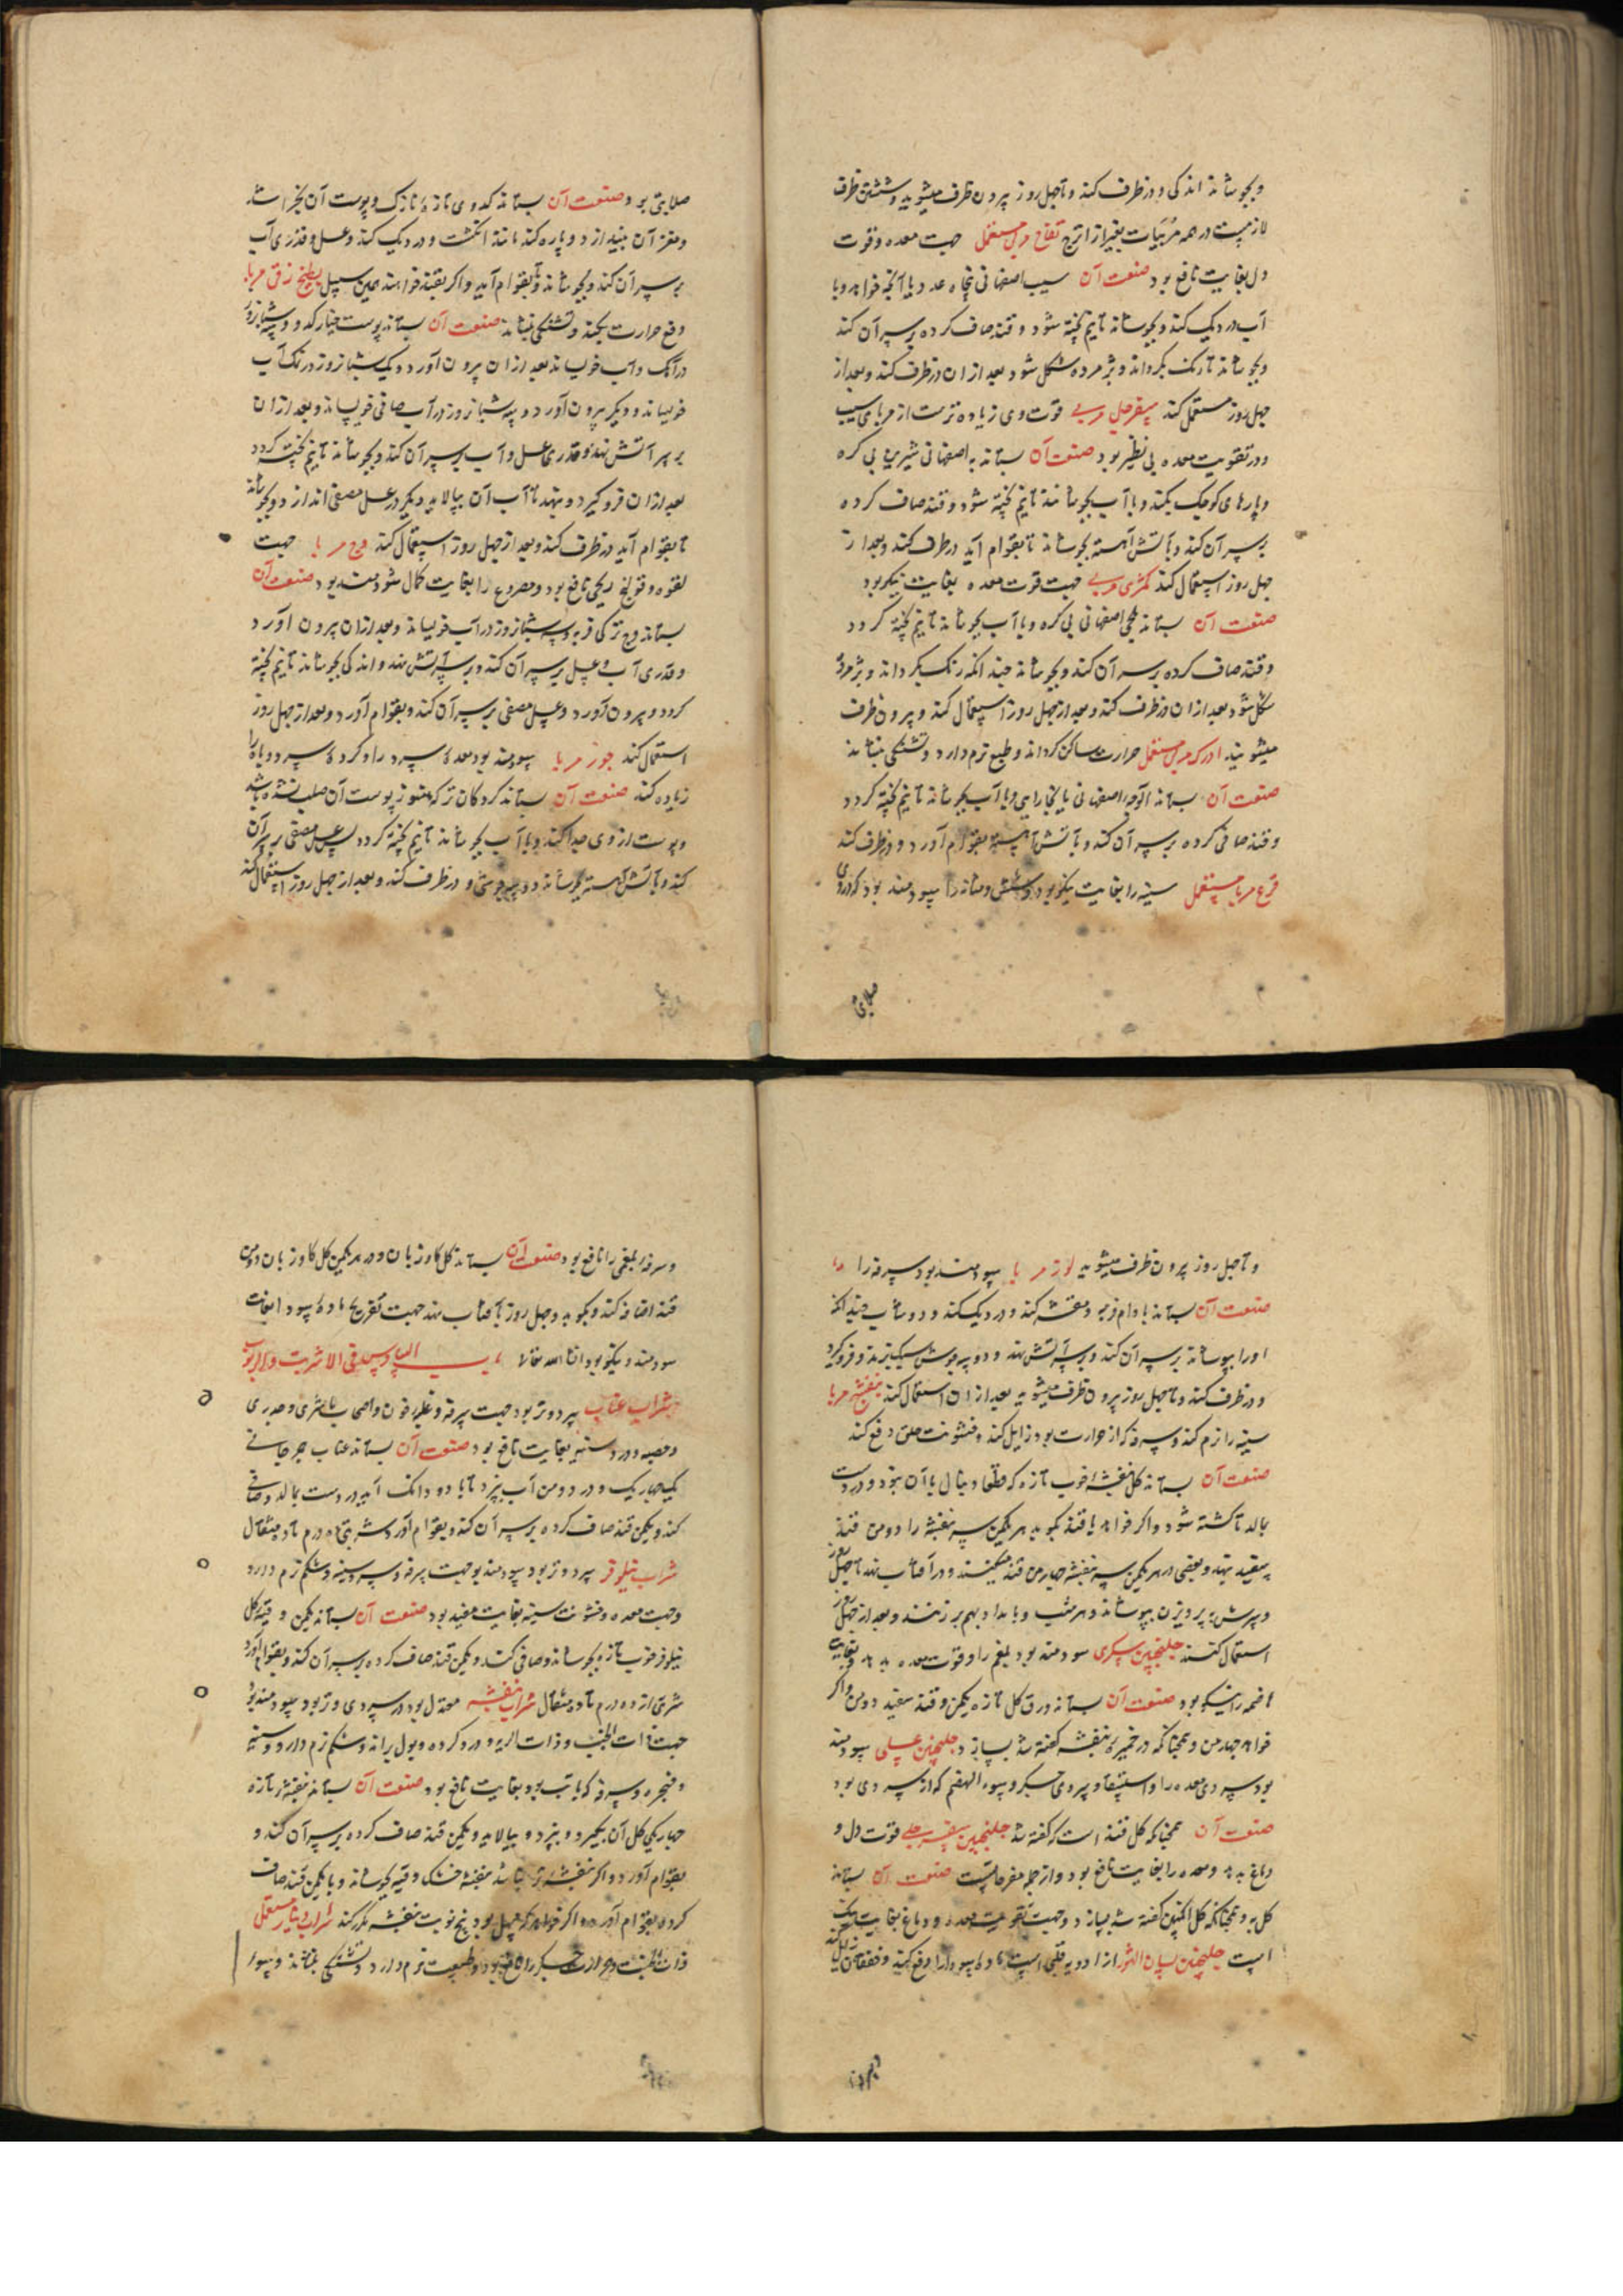 و بجوشاند اندکی و در ظرف کند و تا چهل روز بیرون ظرف میشوید و شستن ظرف
لازمیست در همه مربیات بغیر از اترج تفاح مربی مستعمل جهت معده و قوت
دل بغایت نافع بود صنعت آن سیب اصفهانی پنجاه عدد یا آنکه خواهد و با
آب در دیک کند و بجوشاند تا نیم پخته شود و قند صاف کرده بر سر آن کند
و بجوشاند تا رنک بکرداند و پژمرده شکل شود بعد از ان در ظرف کند و بعد از
چهل روز مستعمل کند سفرجل مربی قوت وی زیاده ترست از مربای سیب
و در تقویت معده بی نظیر بود صنعت آن بستاند به اصفهانی شیرین بی کره
و پارهای کوچک بکند و با آب بجوشانند تا نیم پخته شود و قند صاف کرده
بر سر آن کند و بآتش آهسته بجوشاند تا بقوام آید در ظرف کند و بعد از
چهل روز استعمال کند کمثری مربی جهت قوت معده بغایت نیکو بود
صنعت آن بستاند اصفهانی بی کره و با آب بجوشاند تا نیم پخته کردد
و قند صاف کرده بر سر آن کند و بجوشاند چند انکه رنک بکرداند و پژمرده
شکل شود بعد از ان در ظرف کند و بعد از چهل روز استعمال کند و بیرون ظرف
میشویند ادرک مربی مستعمل حرارت ساکن کرداند و طبع نرم دارد و تشنکی بنشاند
صنعت آن بستاند آلوچه اصفهانی یا بخارایی و با آب بجوشاند تا نیم پخته کردد
و قند صافی کرده بر سر آن کند و بآتش آهسته بقوام آورد و در ظرف کند
قرع مربا مستعمل سینه را بغایت نیکو بود و شش و مثانه را سودمند بود که در وی
صلابتی
صلابتی بود صنعت آن بستاند کدوی تازه نازک و پوست آن بخراشد
و مغز آن بیندازد و پاره کند مانند انکشت و در دیک کند و عسل و قدری آب
بر سر آن کند و بجوشاند تا بقوام آید و اکر بقند خواهند همین سبیل بطیخ زقی مربا
دفع حرارت بکند و تشنکی بنشاند صنعت آن بستاند پوست خیار کدو و سه شبانروز
در آهک و آب خوساند بعد از ان بیرون آورد و یک شبانروز در نمک آب
خوساند و دیکر بیرون آورد و سه شبانروز در آب صافی خوساند و بعد از ان
بر سر آتش نهد و قدری عسل و آب بر سر آن کند و بجوشاند تا نیم پخته کردد
بعد از ان فرو کیرد و بنهد تا آب آن بپالاید و دیکر در عسل مصفی اندازد و بجوشاند
تا بقوام آید در ظرف کند و بعد از چهل روز استعمال کند وج مربا جهت
لقوه و قولنج ریحی نافع بود و مصروع را بغایت کمال سودمند بود صنعت آن
بستاند وج ترکی فربه و سه شبانروز در آب خوساند و بعد از ان بیرون آورد
و قدری آب و عسل بر سر آن کند و بر سر آتش نهد و اندکی بجوشاند تا نیم پخته
کردد و بیرون آورد و عسل مصفی بر سر آن کند و بقوام آورد و بعد از چهل روز
استعمال کند جوز مربا سودمند بود معدهٔ سرد را و کردهٔ سرد و باه را
زیاده کند صنعت آن بستاند کردکان تر که هنوز پوست آن صلب نشده باشد
و پوست از وی جدا کند و با آب بجوشاند تا نیم پخته کردد پس عسل مصفی بر سر آن
کند و بآتش آهسته بجوشاند دو سه جوشی و در ظرف کند و بعد از چهل روز استعمال کند
و تا چهل روز بیرون ظرف میشوید لوز مربا سودمند بود سرفه را
صنعت آن بستاند بادام فربه و مقشر کند و در دیک کند و دوشاب چندانکه
او را بپوشاند بر سر آن کند و بر سر آتش نهد و دو سه جوش سبکتر بدهد و فروکیرد
و در ظرف کند و تا چهل روز بیرون ظرف میشوید بعد از ان استعمال کند بنفشه مربا
سینه را نرم کند و سرفه که از حرارت بود زایل کند و خشونت حلق دفع کند
صنعت آن بستاند کل بنفشهٔ خوب تازه که قطعا دنبال با آن نبود و در دست
بمالد تا کشته شود و اکر خواهد با قند بکوبد هر یکمن سر بنفشه را دو من قند
سفید نهد و بعضی در هر یکمن سر بنفشه چهار من قند میکنند و در آفتاب نهد تا چهل روز
و سرش به پرویزن بپوشاند و هر شب و بامداد بهم بر زنند و بعد از چهل روز
استعمال کنند جلنجبین سکری سودمند بود بلغم را و قوت معده بدهد و بغایت
هاضمه را نیکو بود صنعت آن بستاند ورق کل تازه یکمن و قند سفید دو من و اکر
خواهد چهار من و همچنانکه در خمیرهٔ بنفشه کفته شد بسازد جلنجبین عسلی سودمند
بود سردی معده را و استسقا و سردی جکر و سوء الهضم که از سردی بود
صنعت آن همچنانکه کل قند است که کفته شد جلنجبین سفرجلی قوت دل و
دماغ بدهد و معده را بغایت نافع بود و از جمله مفرحاتست صنعت آن بستاند
کل به و همچنانکه کل انکبین کفته شد بسازد و جهت تقویت معده و دماغ بغایت نیک
است جلنجبین لسان الثور از ادویهٔ قلبی است مادهٔ سودا را دفع کند و خفقان زایل کند
و سرفهٔ بلغمی را نافع بود صنعت آن بستاند کل کاوزبان و در هر یکمن کل کاوزبان دو من
قند اضافه کند و بکوبد و چهل روز بآفتاب نهد جهت تفریح مادهٔ سودا بغایت
سودمند و نیکو بود انشا الله تعالا باب السادس فی الاشربت و الربوب
شراب عناب سرد و تر بود جهت سرفه و غلبهٔ خون و اصحاب شری و جدری
و حصبه و درد سینه بغایت نافع بود صنعت آن بستاند عناب جرجانی
یک چهاریک و در دو من آب بپزد تا با دو دانک آید در دست بمالد و صافی
کند و یکمن قند صاف کرده بر سر آن کند و بقوام آورد شربتی ده درم تا ده مثقال
شراب نیلوفر سرد و تر بود سودمند بود جهت سرفه و سر و سینه و شکم نرم دارد
و جهت معده و خشونت سینه بغایت مفید بود صنعت آن بستاند یکمن و قیه کل
نیلوفر خوب تازه بجوشاند و صافی کند و یکمن قند صاف کرده بر سر آن کند و بقوام آورد
شربتی از ده درم تا ده مثقال شراب بنفشه معتدل بود در سردی و تر بود سودمند بود
جهت ذات الجنب و ذات الریه و درد کرده و بول براند و شکم نرم دارد و سینه
و حنجره و سرفه که با تب بود بغایت نافع بود صنعت آن بستاند بنفشهٔ تازه
چهاریکی کل آن بکیرد و بپزد و بپالاید و یکمن قند صاف کرده بر سر آن کند و
بقوام آورد و اکر بنفشهٔ تر نباشد بنفشهٔ خشک وقیه بجوشاند و با یکمن قند صاف
کرده بقوام آورد و اکر خواهد که مسهل بود پنج نوبت بنفشه مکرر کند شراب دینار مستعمل
ذات الجنب و حرارت جکر را نافع بود و طبیعت نرم دارد و تشنکی بنشاند و